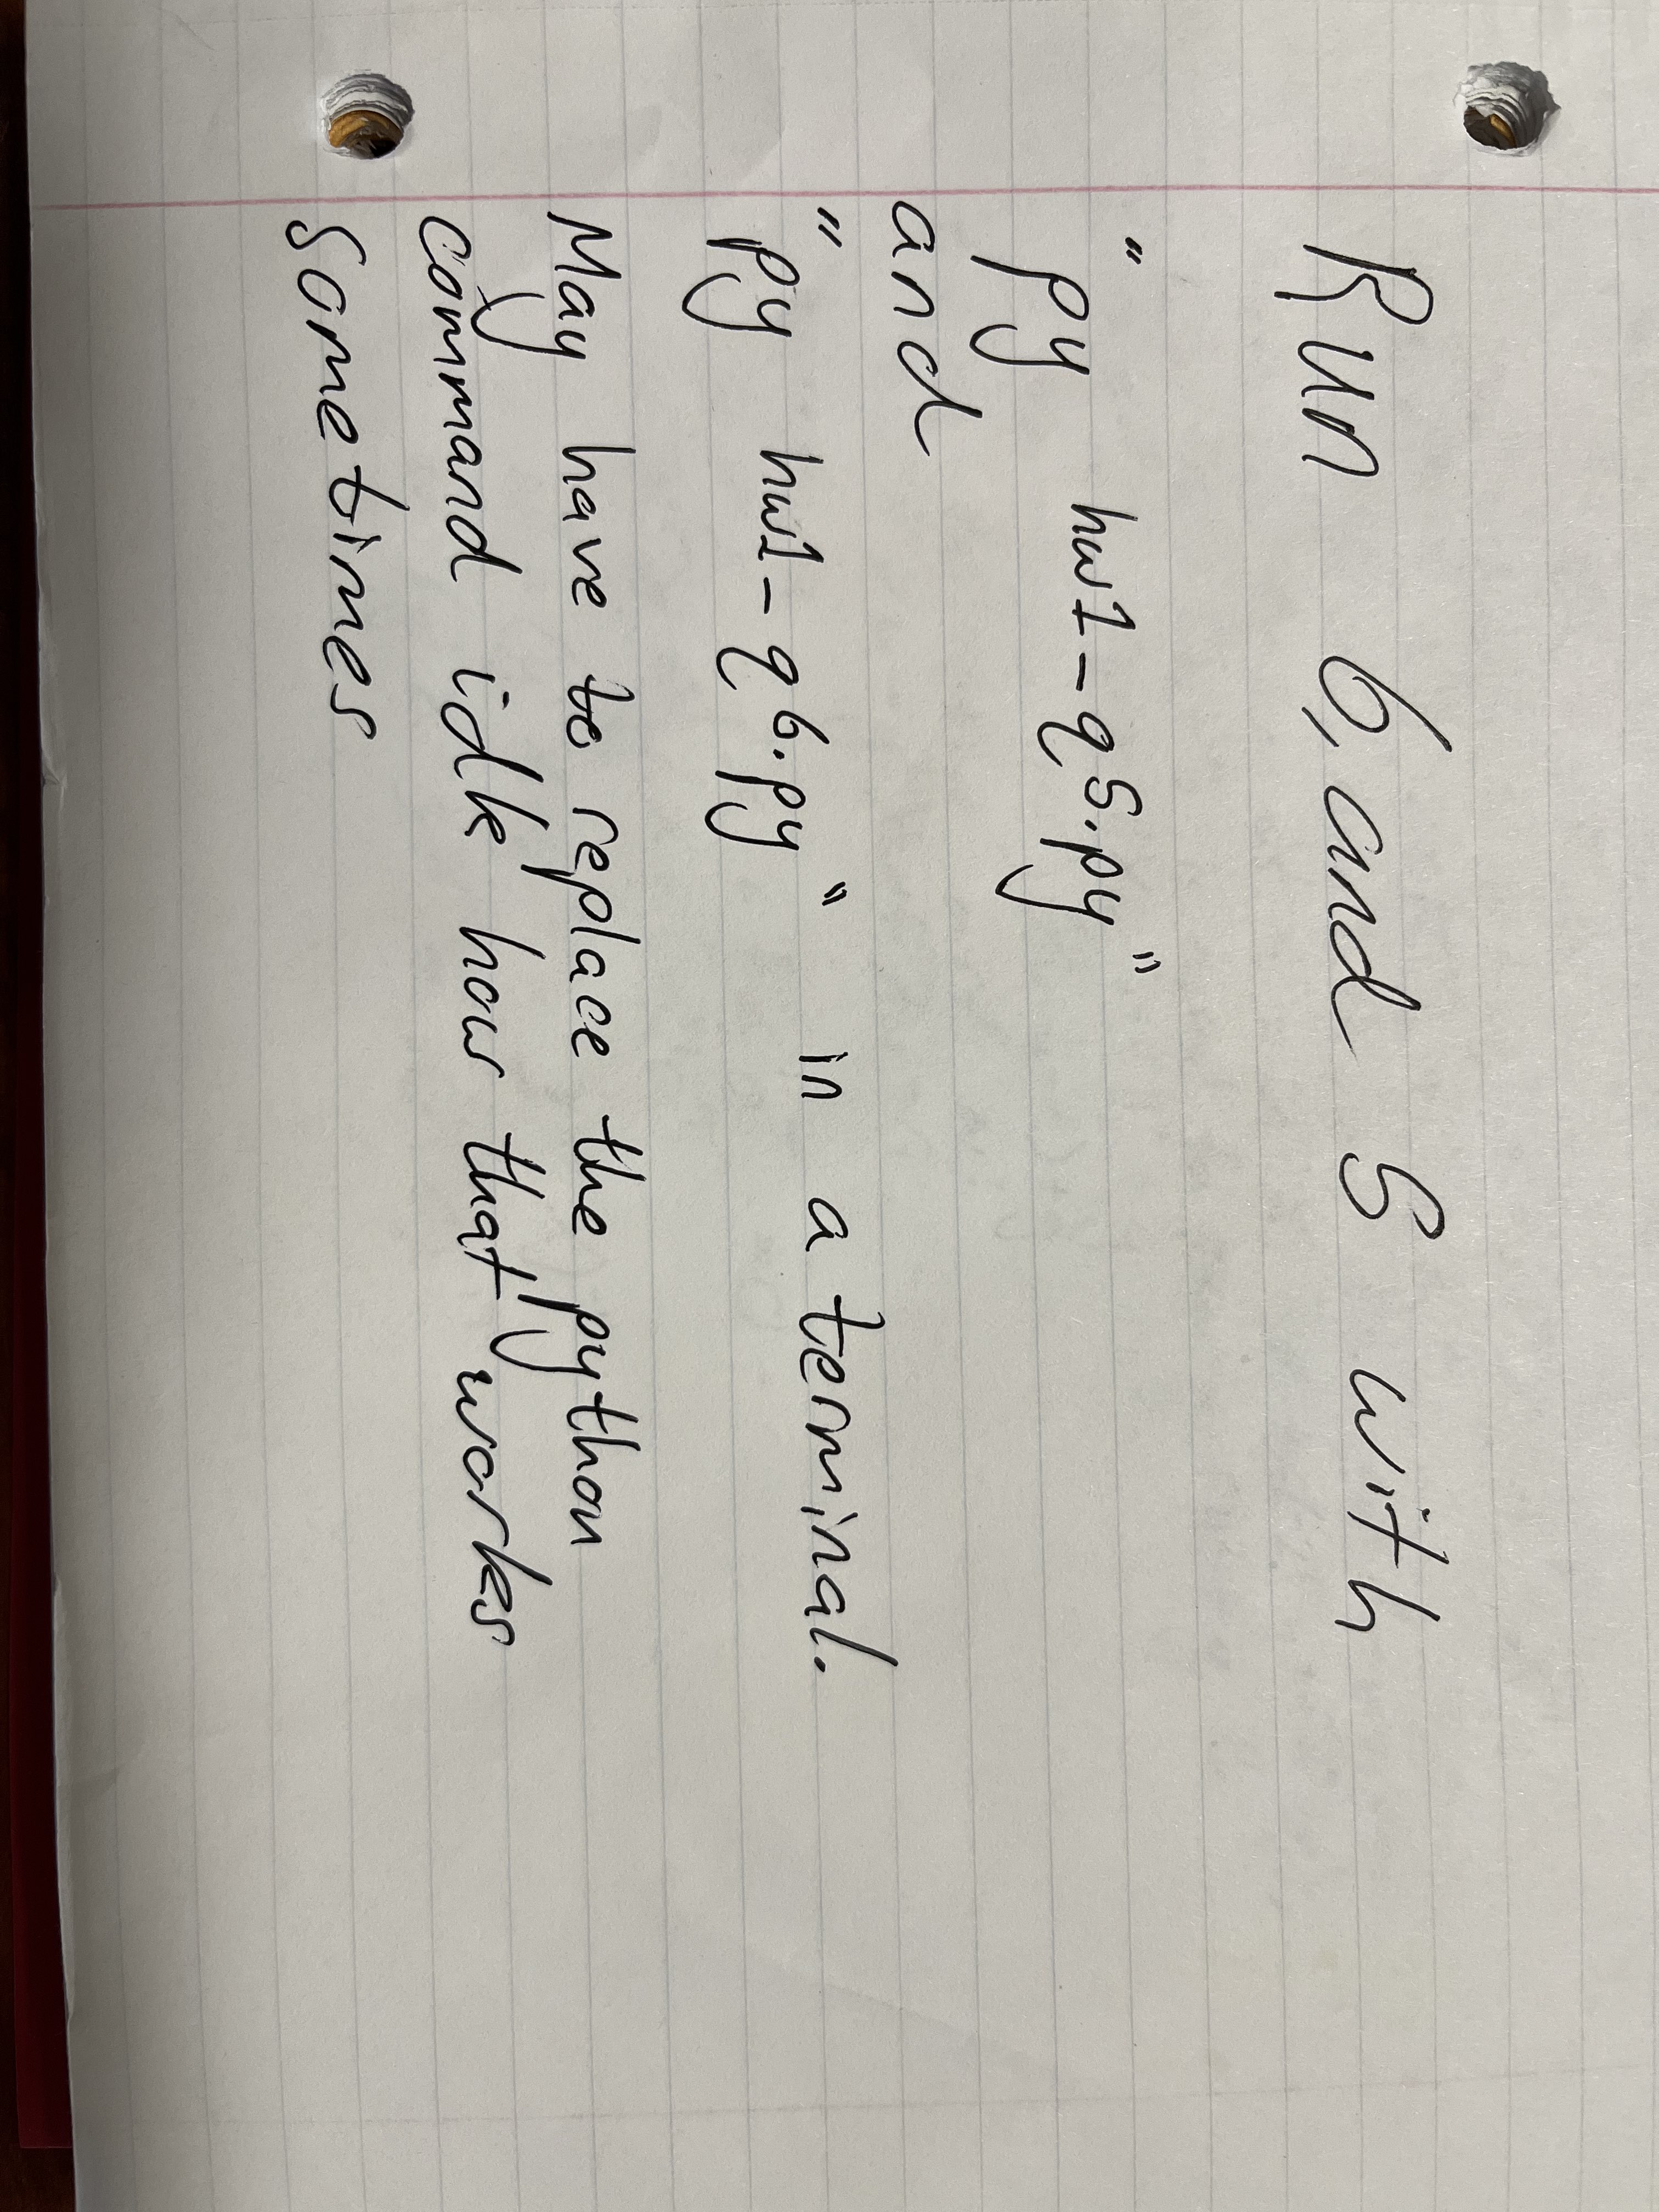 Run 6, and 5 with
"py hw1_q5.py"
and
"py hw1_q6.py" in a terminal.
May have to replace the python
command idk how that works
sometimes